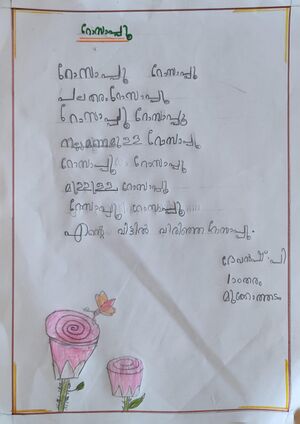 റോസാപ്പൂ
റോസാപ്പൂ റോസാപ്പൂ
പല തരം റോസാപ്പൂ
റോസാപ്പൂ റോസാപ്പൂ
നല്ലമണമുള്ള റോസാപ്പൂ
റോസാപ്പൂ റോസാപ്പൂ
മുള്ളുള്ള റോസാപ്പൂ
റോസാപ്പൂ റോസാപ്പൂ
എന്റെ വീട്ടിൽ വിരിഞ്ഞ റോസാപ്പൂ.
1ാംതരം